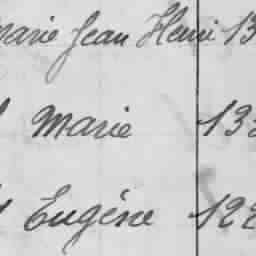 Marie Jean Henri 13
Marie 13
Eugène 122